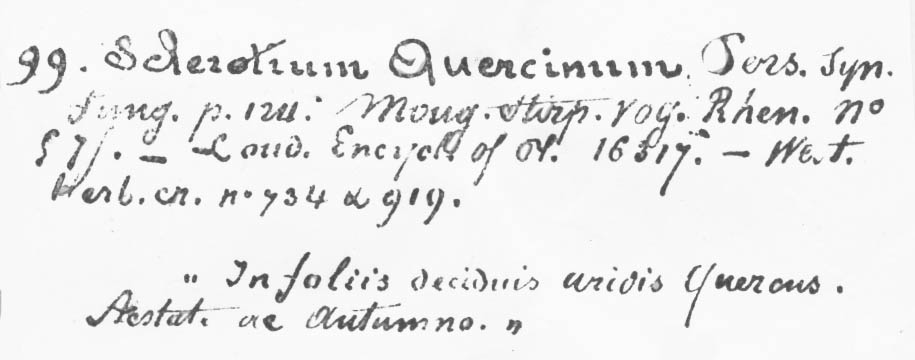 99. Sclerotium Quercinum. Pers. Syn.
Fung. p. 124: Moug. Stirp. Vog. Rhen. no
571. – Loud. Encycl. of Pl. 16317. – West.
Herb. cr. no 734 & 919.
„ In foliis deciduis aridis Quercus.
Aestate ac Autumno. „